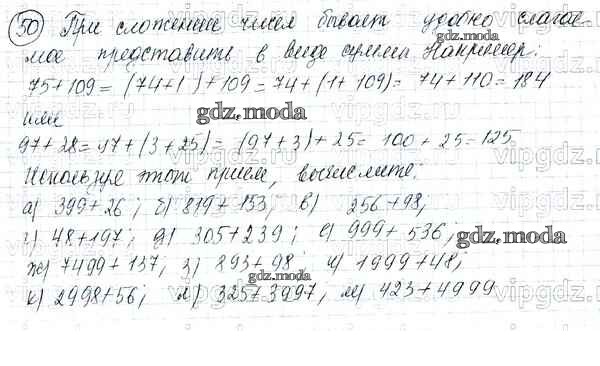 50) При сложение чисел бывает удобно слагае-
мое представить в виде суммы Например:
75+109 = (74+1)+109 = 74+(1+109) = 74+110 = 184
или
97+28 = 97+(3+25) = (97+3)+25 = 100+25 = 125
Используя этот прием, вычислите:
а) 399+26; б) 819+153; в) 256+98;
г) 48+197; д) 305+239; е) 999+536;
ж) 7499+137; з) 893+98; и) 1999+48;
к) 2998+56; л) 325+3997; м) 423+4999
gdz.moda
gdz.moda
gdz.moda
gdz.moda
gdz.moda
vipgdz.ru